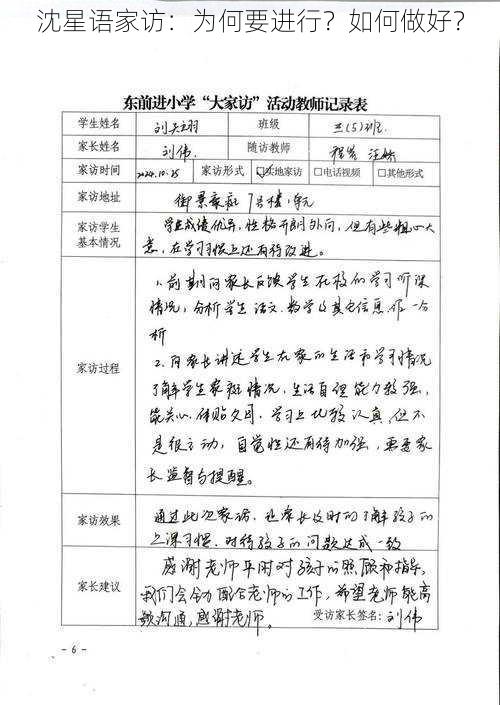 沈星语家访：为何要进行？如何做好？
东前进小学“大家访”活动教师记录表
学生姓名 刘天翊 班级 三(5)班
家长姓名 刘伟 随访教师
家访时间 2024.10.25 家访形式 □实地家访 □电话视频 □其他形式
家访地址 御景家庭 7号楼1单元
家访学生
基本情况
学生成绩优异，性格开朗外向，但有些粗心大
意，在学习习惯上还有待改进。
家访过程
1、前期向家长反馈学生在校的学习听课
情况，分析学生语文、数学及其它信息，作一分
析
2、向家长讲述学生在家的生活和学习情况
了解学生家庭情况，生活自理能力较强，
能关心、体贴父母，学习上比较认真，但不
是很主动，自觉性还有待加强，需要家
长监督与提醒。
家访效果
通过此次家访，让家长及时的了解孩子的
上课习惯，对待孩子的问题达成一致
家长建议
感谢老师平时对孩子的照顾和指导，
我们会全力配合老师的工作，希望老师能高
频沟通，感谢老师。
受访家长签名：刘伟
- 6 -